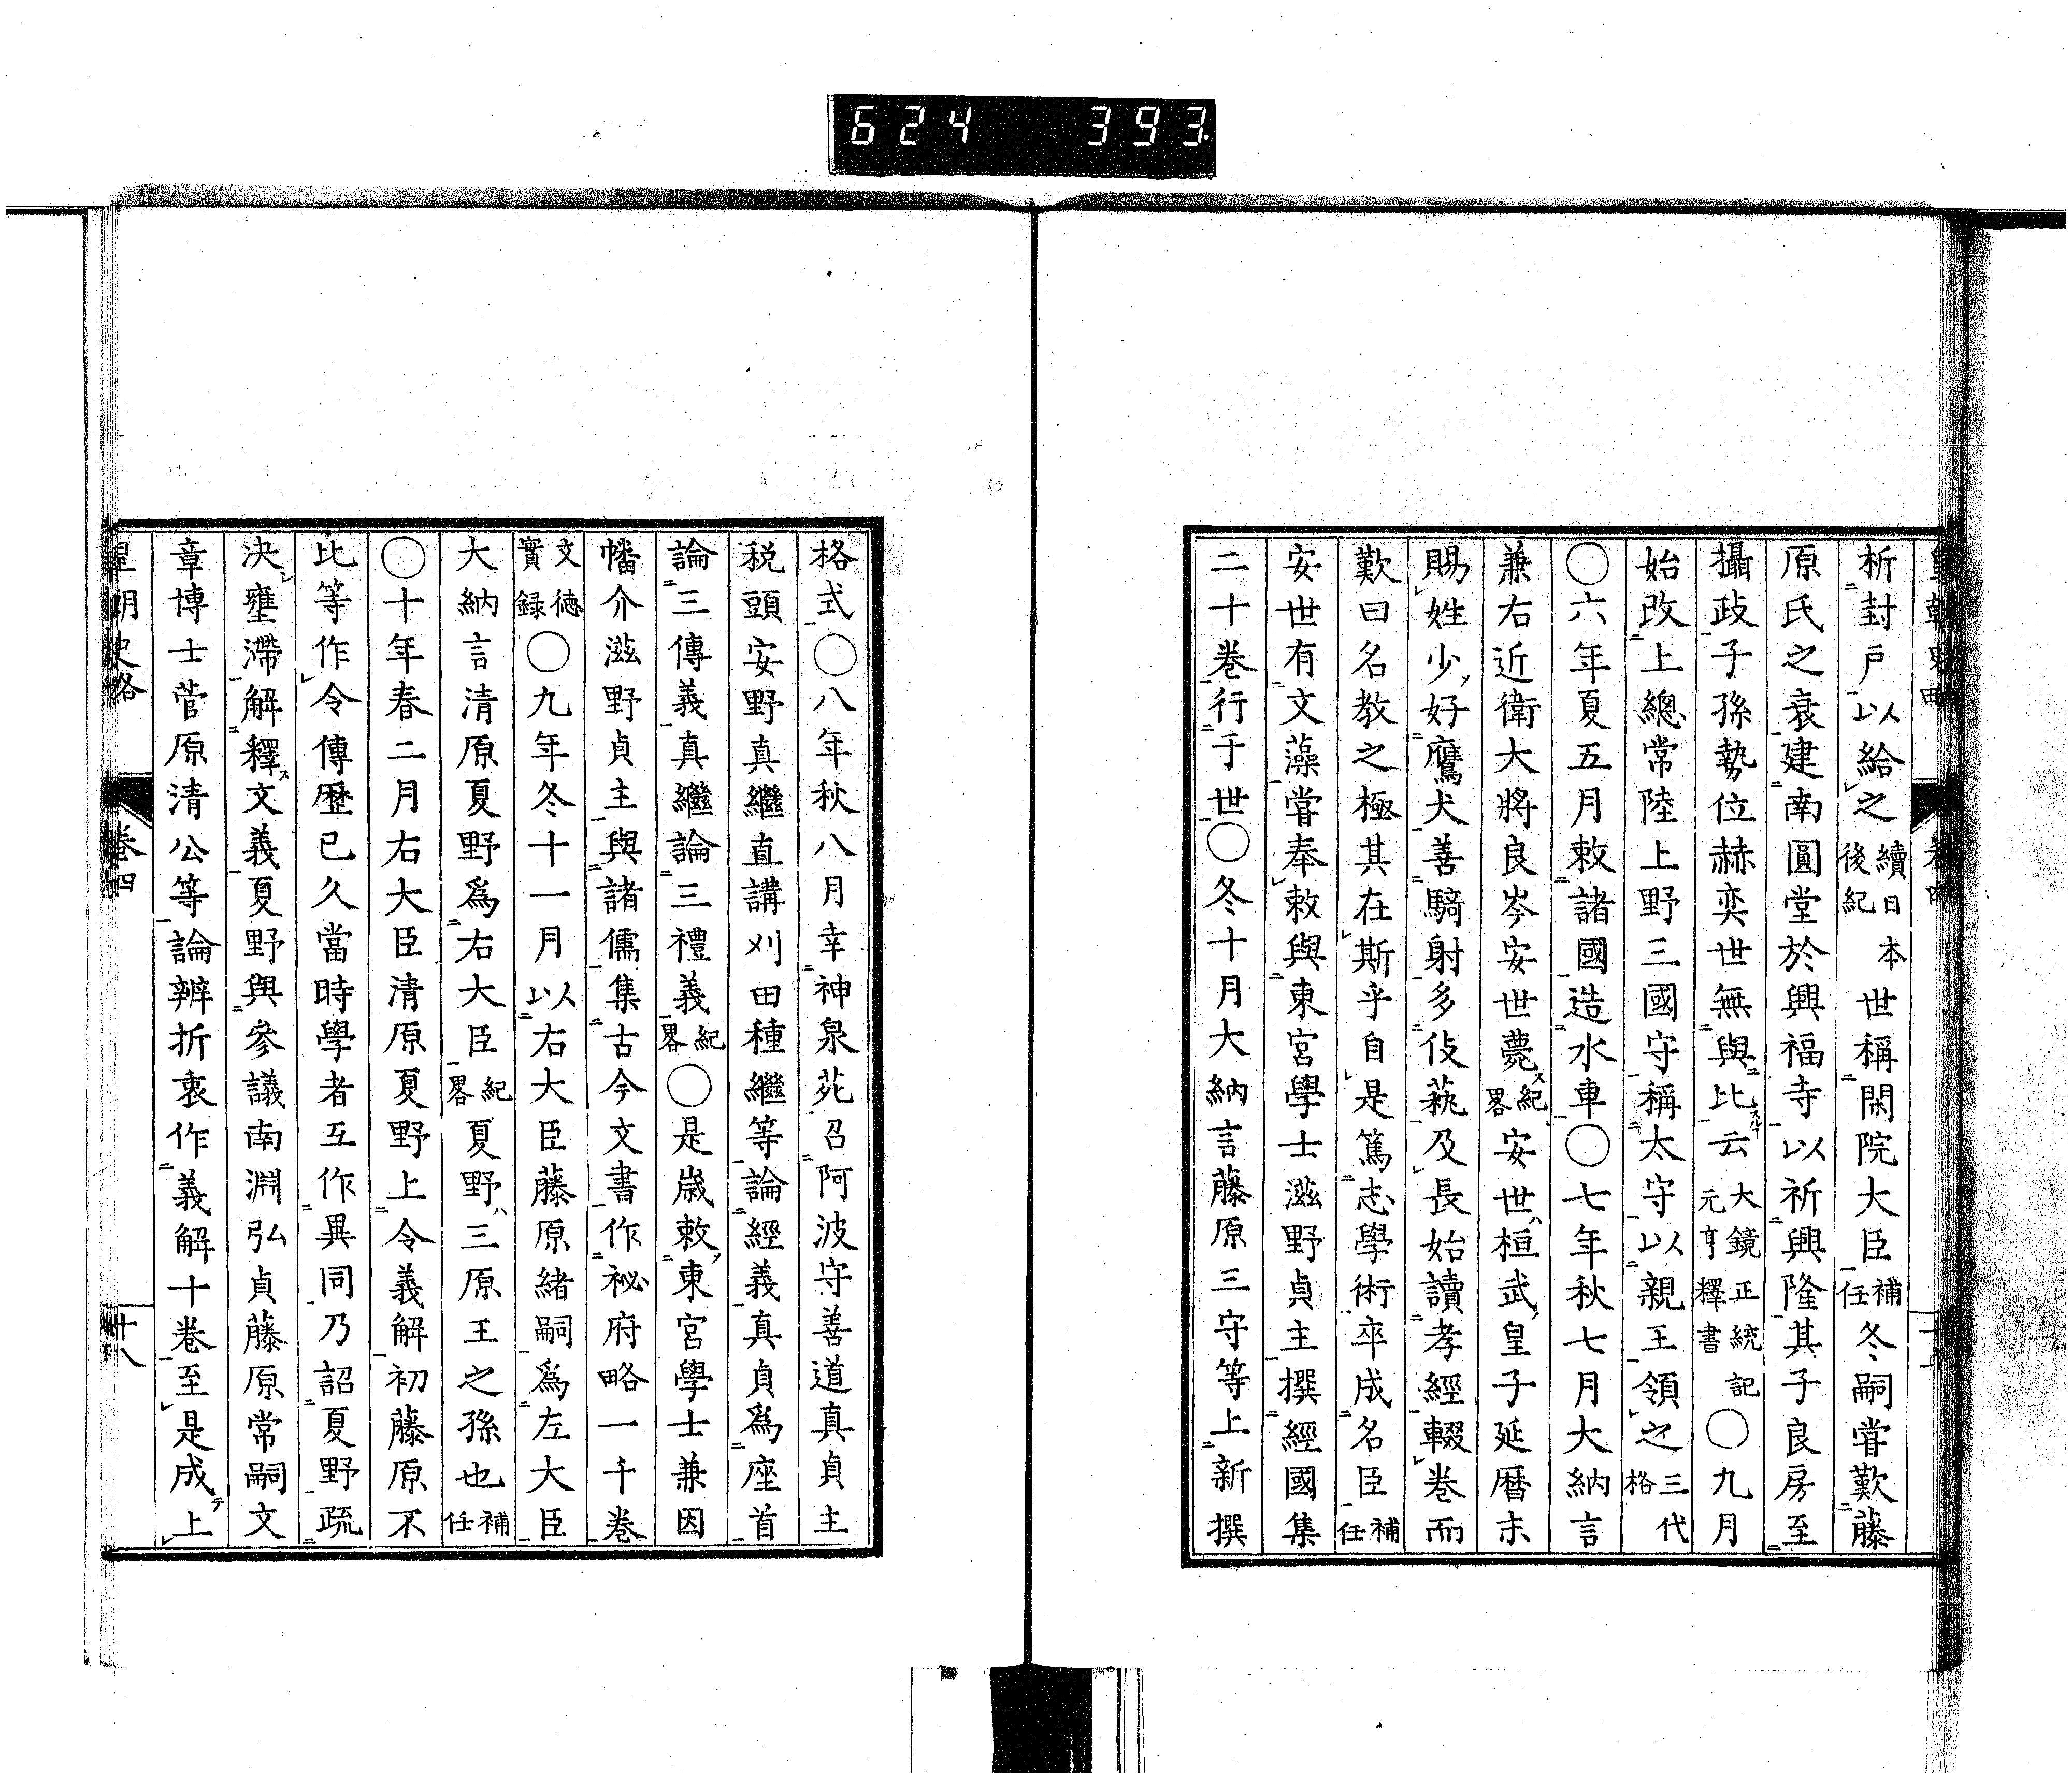 624 393
析封戸以給之續日本後紀世稱閑院大臣補任冬嗣嘗歎藤
原氏之衰建南圓堂於興福寺以祈興隆其子良房至
攝政子孫勢位赫奕世無與比云大鏡正統記元亨釋書〇九月
始改上總常陸上野三國守稱太守以親王領之三代格
〇六年夏五月敕諸國造水車〇七年秋七月大納言
兼右近衛大將良岑安世薨紀畧安世ハ桓武皇子延曆末
賜姓少好鷹犬善騎射多伎蓺及長始讀孝經輟卷而
歎曰名教之極其在斯乎自是篤志學術卒成名臣補任
安世有文藻嘗奉敕與東宮學士滋野貞主撰經國集
二十卷行于世〇冬十月大納言藤原三守等上新撰
格式〇八年秋八月幸神泉苑召阿波守善道真貞主
税頭安野真繼直講刈田種繼等論經義真貞爲座首
論三傳義真繼論三禮義紀畧〇是歲敕東宮學士兼因
幡介滋野貞主與諸儒集古今文書作祕府略一千卷
文德實録〇九年冬十一月以右大臣藤原緒嗣爲左大臣
大納言清原夏野爲右大臣紀畧夏野ハ三原王之孫也補任
〇十年春二月右大臣清原夏野上令義解初藤原不
比等作令傳歷已久當時學者互作異同乃詔夏野疏
決壅滯解釋文義夏野與參議南淵弘貞藤原常嗣文
章博士菅原清公等論辨折衷作義解十卷至是成上
皇朝史略 卷四 十八